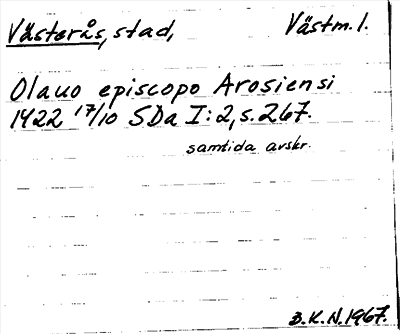 Västerås, stad, Västm. l.
Olauo episcopo Arosiensi
1422 17/10 SDa I:2, s. 267.
samtida avskr.
B.K.N. 1967.